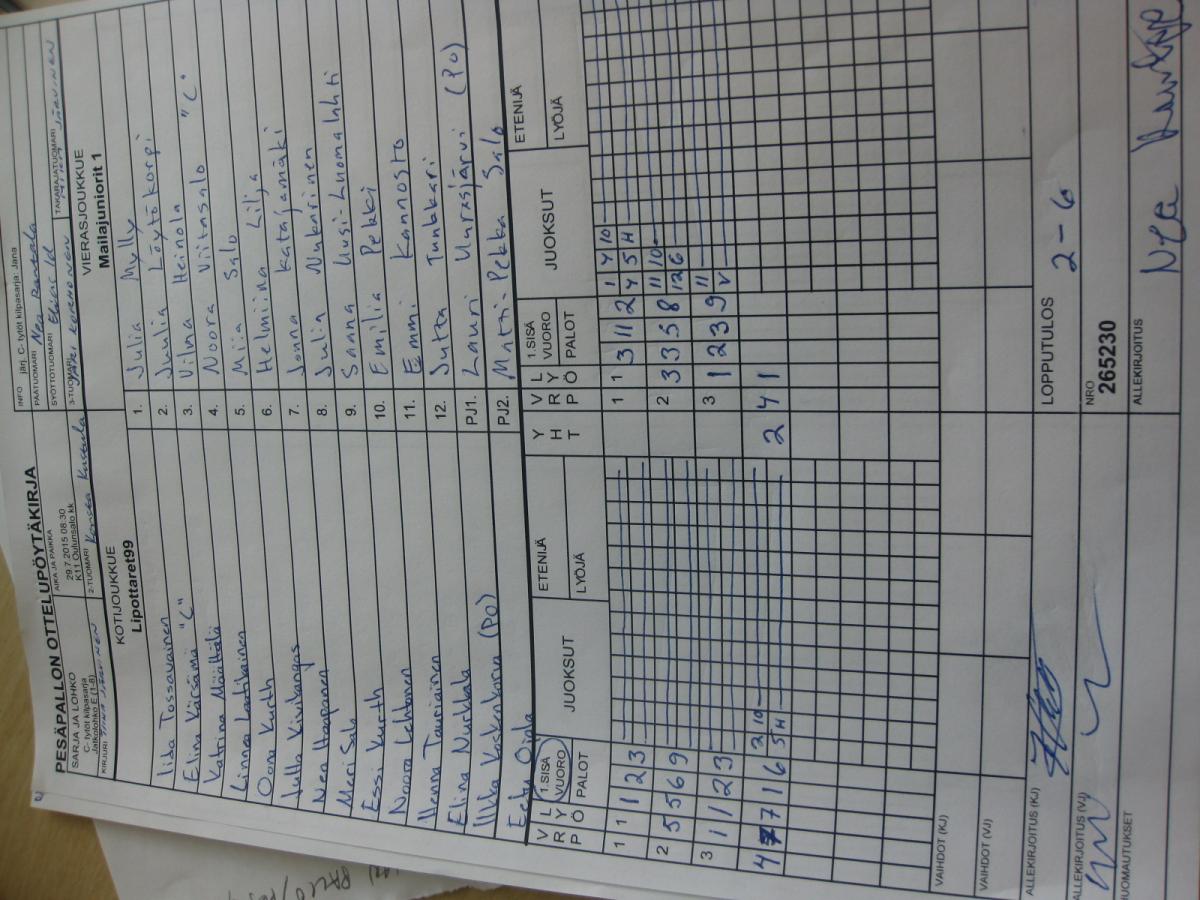 PESÄPALLON OTTELUPÖYTÄKIRJA
SARJA JA LOHKO
C- tytöt kilpasarja
Jatkolohko E (1-8)
AIKA JA PAIKKA
29.7.2015 08:30
K11 Oulunsalo kk
INFO järj. C- tytöt kilpasarja: Jana
PÄÄTUOMARI Nea Rantala
SYÖTTÖTUOMARI
TAKARAJATUOMARI
KIRJURI
2-TUOMARI
3-TUOMARI
KOTIJOUKKUE
Lipottaret99
VIERASJOUKKUE
Mailajuniorit 1
Iida Tossavainen
1. Julia Mylly
Elina Kärsämä "C"
2. Juulia Löytökorpi
Katriina Määttälä
3. Vilna Heinola "C"
Linnea Laatikainen
4. Noora Viitasalo
Oona Kurth
5. Miia Salo
Julla Kivikangas
6. Helmiina Lilja
Neri Haapanen
7. Jonna Katajamäki
Meri Salo
8. Julia Nukarinen
Essi Kurth
9. Sanna Uusi-Luomalahti
Noora Lehtonen
10. Emilia Pekki
Henna Tauriainen
11. Emmi Kannosto
Elina Nurkkala
12. Jutta Tunkkari
Ilkka Koskenkorva (PO)
PJ1. Lauri Uurasjärvi (PO)
Eetu Ojala
PJ2. Matti-Pekka Salo
V R P
L Y Ö
1.SISÄ VUORO
PALOT
JUOKSUT
ETENIJÄ
LYÖJÄ
Y H T
V R P
L Y Ö
1.SISÄ VUORO
PALOT
JUOKSUT
ETENIJÄ
LYÖJÄ
1 1 1 2 3
1 1 3 11 2 1 4 10
4 5 H
2 5 5 6 9
2 3 3 5 8 11 10
12 6
3 1 1 2 3
3 1 2 3 9 11
V
4 7 7 1 6 2 10
5 H
2 4 1
VAIHDOT (KJ)
VAIHDOT (VJ)
ALLEKIRJOITUS (KJ)
LOPPUTULOS 2-6
ALLEKIRJOITUS (VJ)
NRO
265230
HUOMAUTUKSET
ALLEKIRJOITUS
Nea